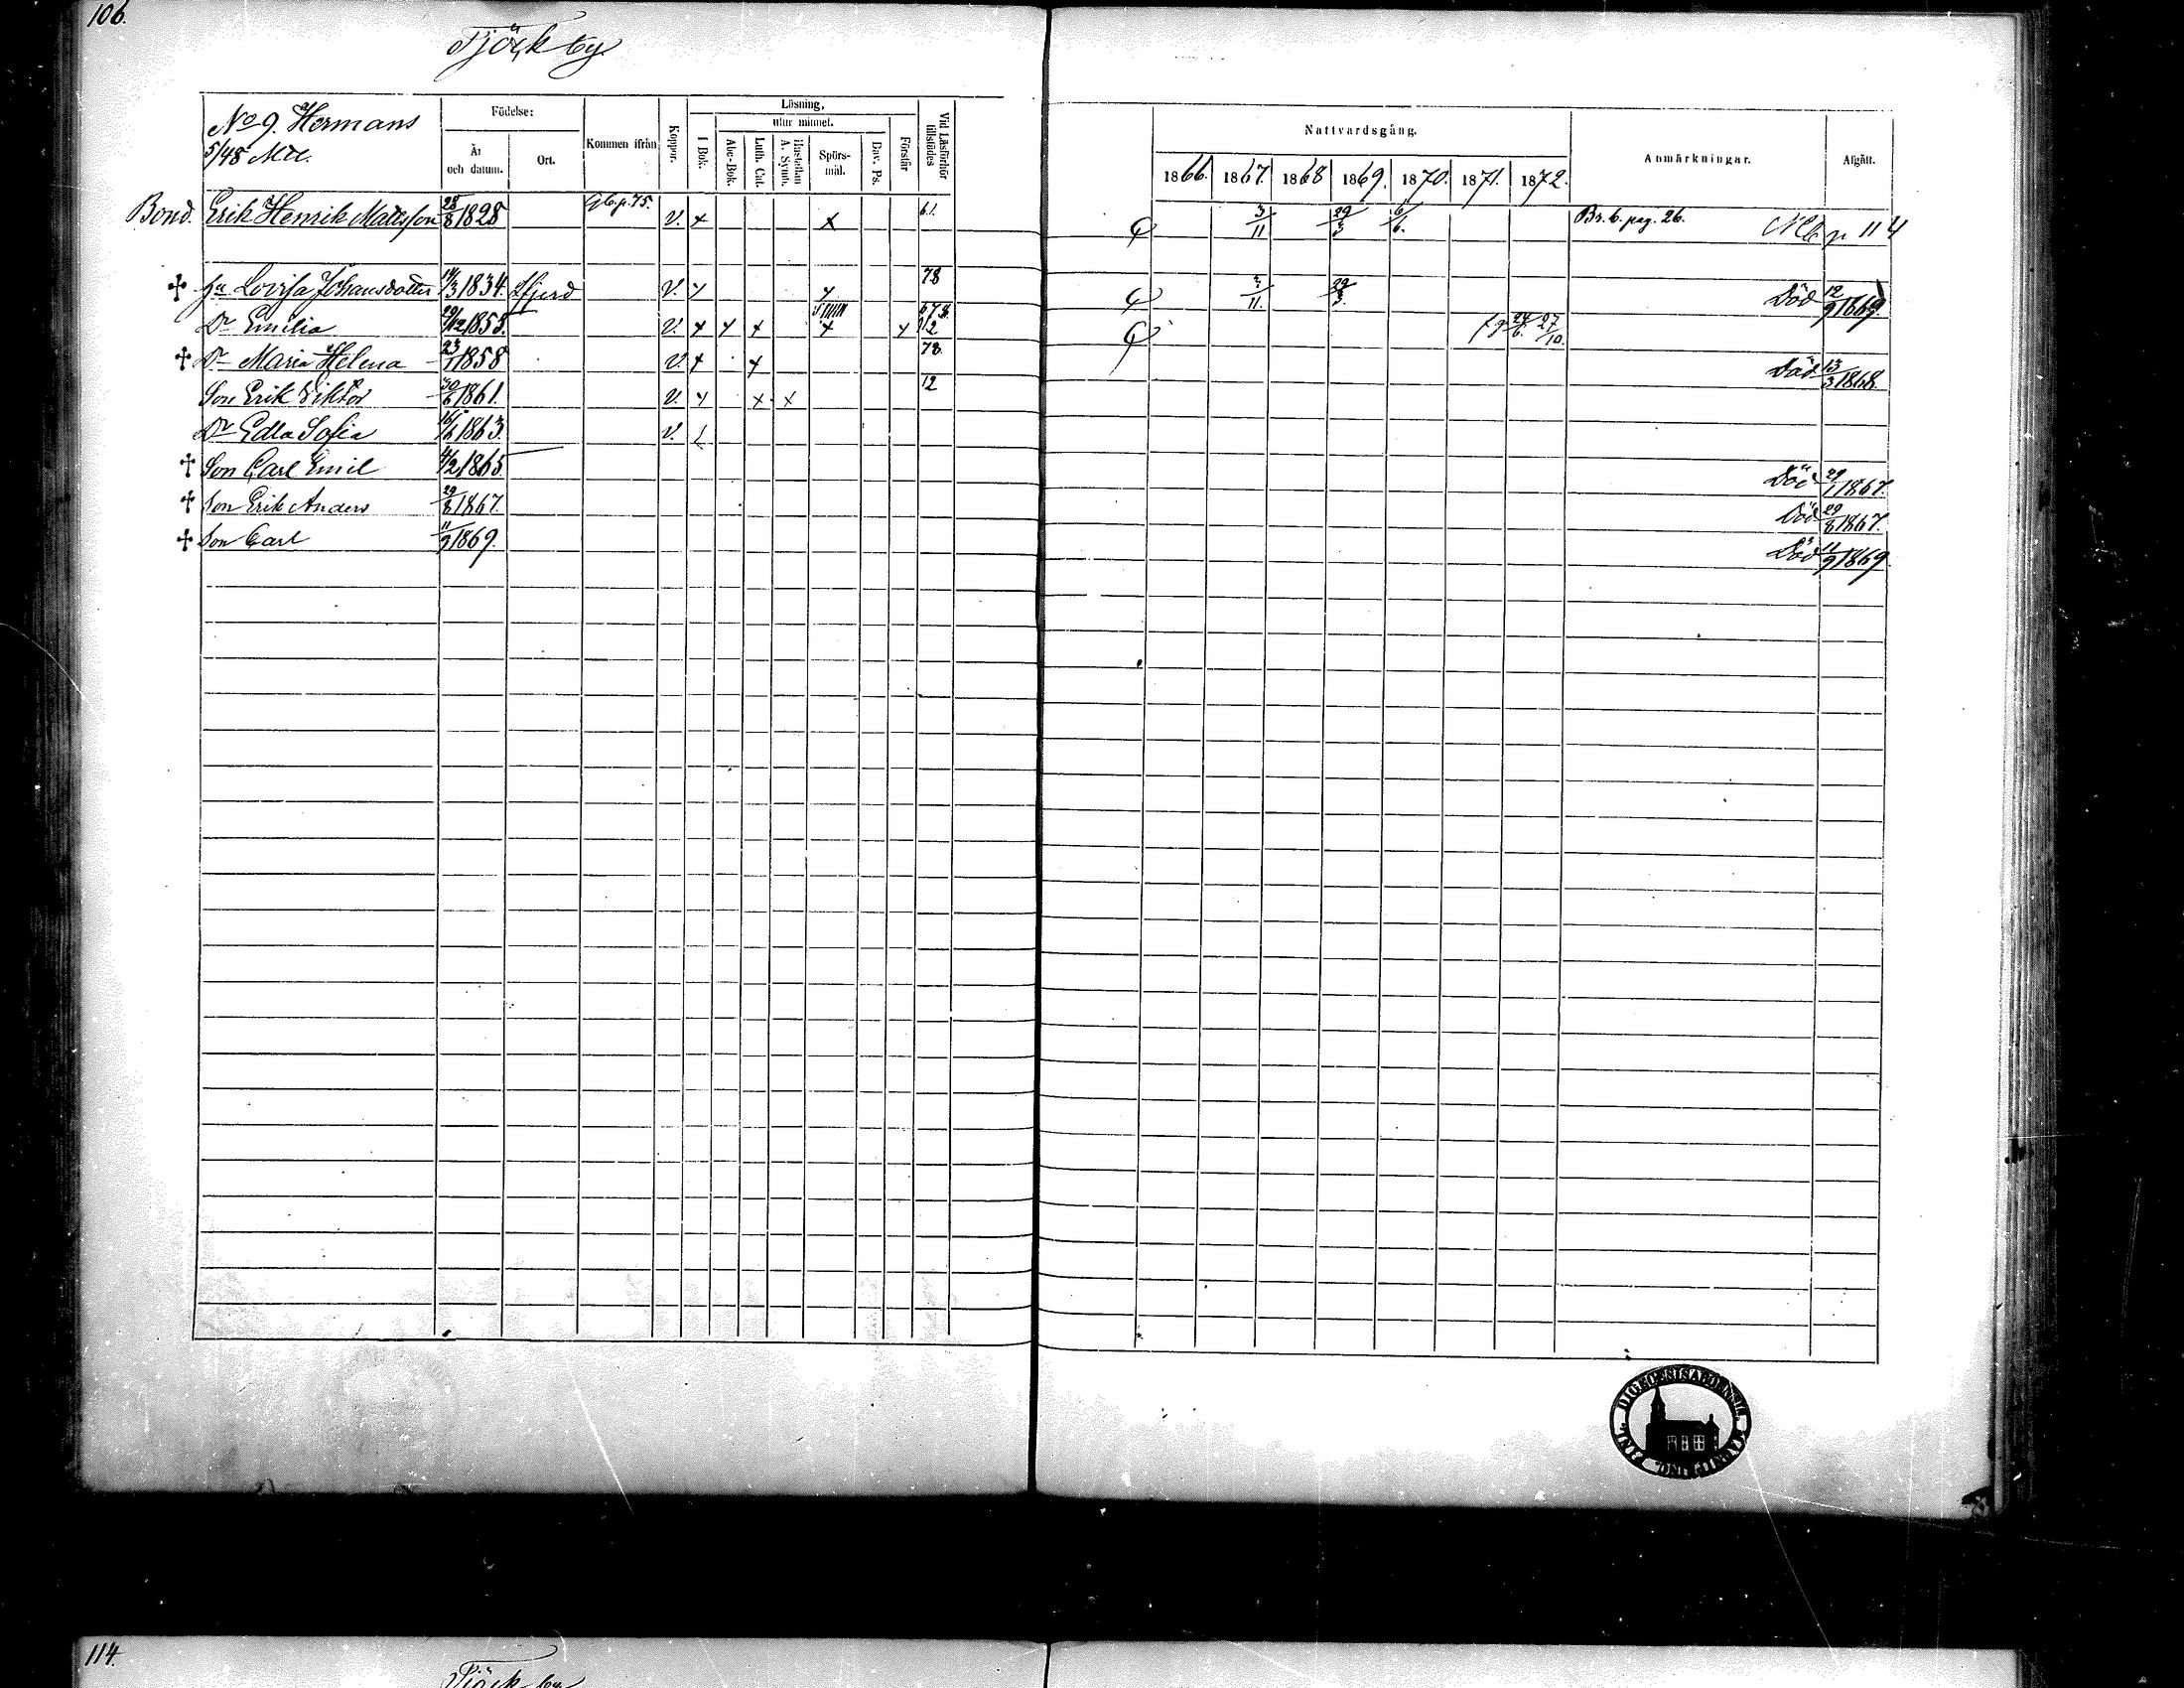 106.
Tjöck by.
No 9. Hermans
5/48 Mtl.
Födelse:
År och datum.
Ort.
Kommen ifrån
Koppor.
Läsning,
utur minnet.
I Bok.
Abc-Bok.
Luth. Cat.
Hustaflan A. Symb.
Spörs-mål.
Dav. Ps.
Förstår
Vid Läsförhör tillstädes
Nattvardsgång.
1866. 1867. 1868 1869. 1870. 1871. 1872.
Anmärkningar.
Afgått.
Bond. Erik Henrik Mattsson 28/8 1828 Glb. p. 75. V. x x 61. 3/11 29/3 6/6. Br. b. pag. 26. Nlb. p 114
+ Hu Lovisa Johansdotter 14/3 1834. Lfjerd V. x x 78 3/11. 29/3. Död 12/9 1869.
Dr Emilia 29/12 1853. V. x x x x x 12 24/6. 27/10.
+ Dr Maria Helena 23/1 1858 V. x x 78. Död 13/3 1868.
Son Erik Viktor 30/6 1861. V. x x x 12
Dr Edla Sofia 1863. V.
+ Son Carl Emil 4/2 1865. Död 29/1 1867.
+ Son Erik Anders 29/8 1867. Död 29/8 1867.
+ Son Carl 11/9 1869. Död 11/9 1869
114.
Tjöck by.